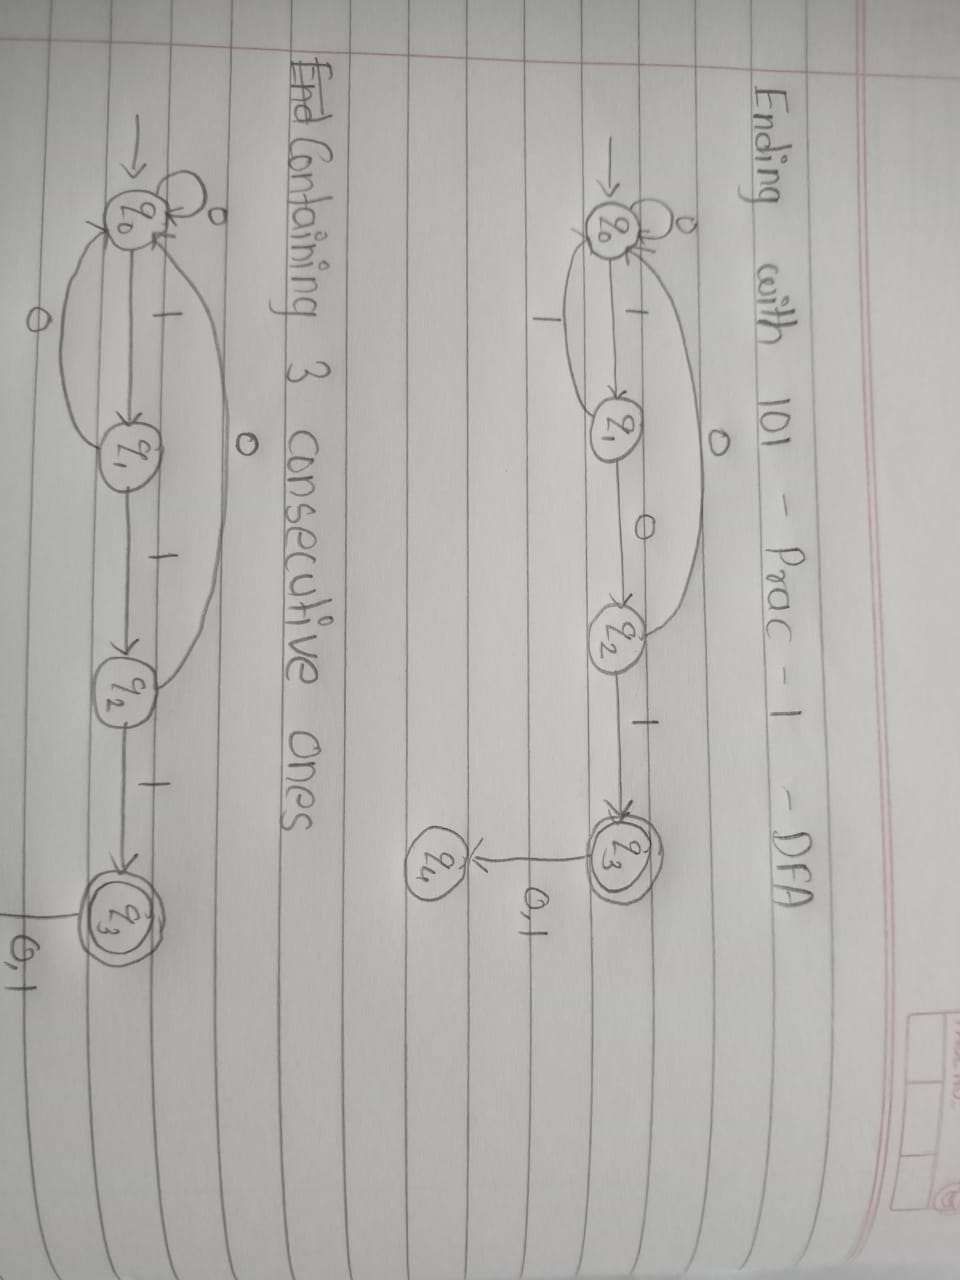 PAGE NO.
Ending with 101 - Prac - 1 - DFA
0
0
q0 1 q1 0 q2 1 q3
1
0,1
q4
End Containing 3 consecutive ones
0
0
q0 1 q1 1 q2 1 q3
0
0,1